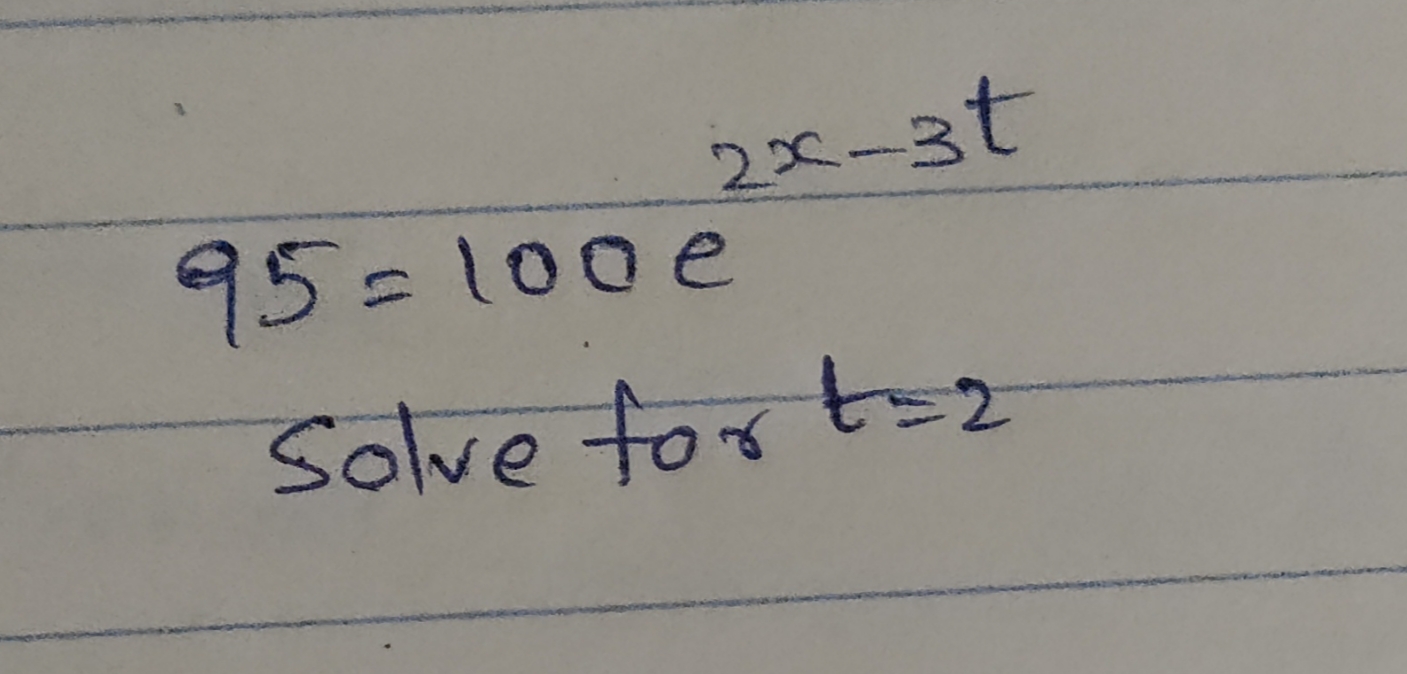 95 = 100 e^{2x-3t}
Solve for t=2